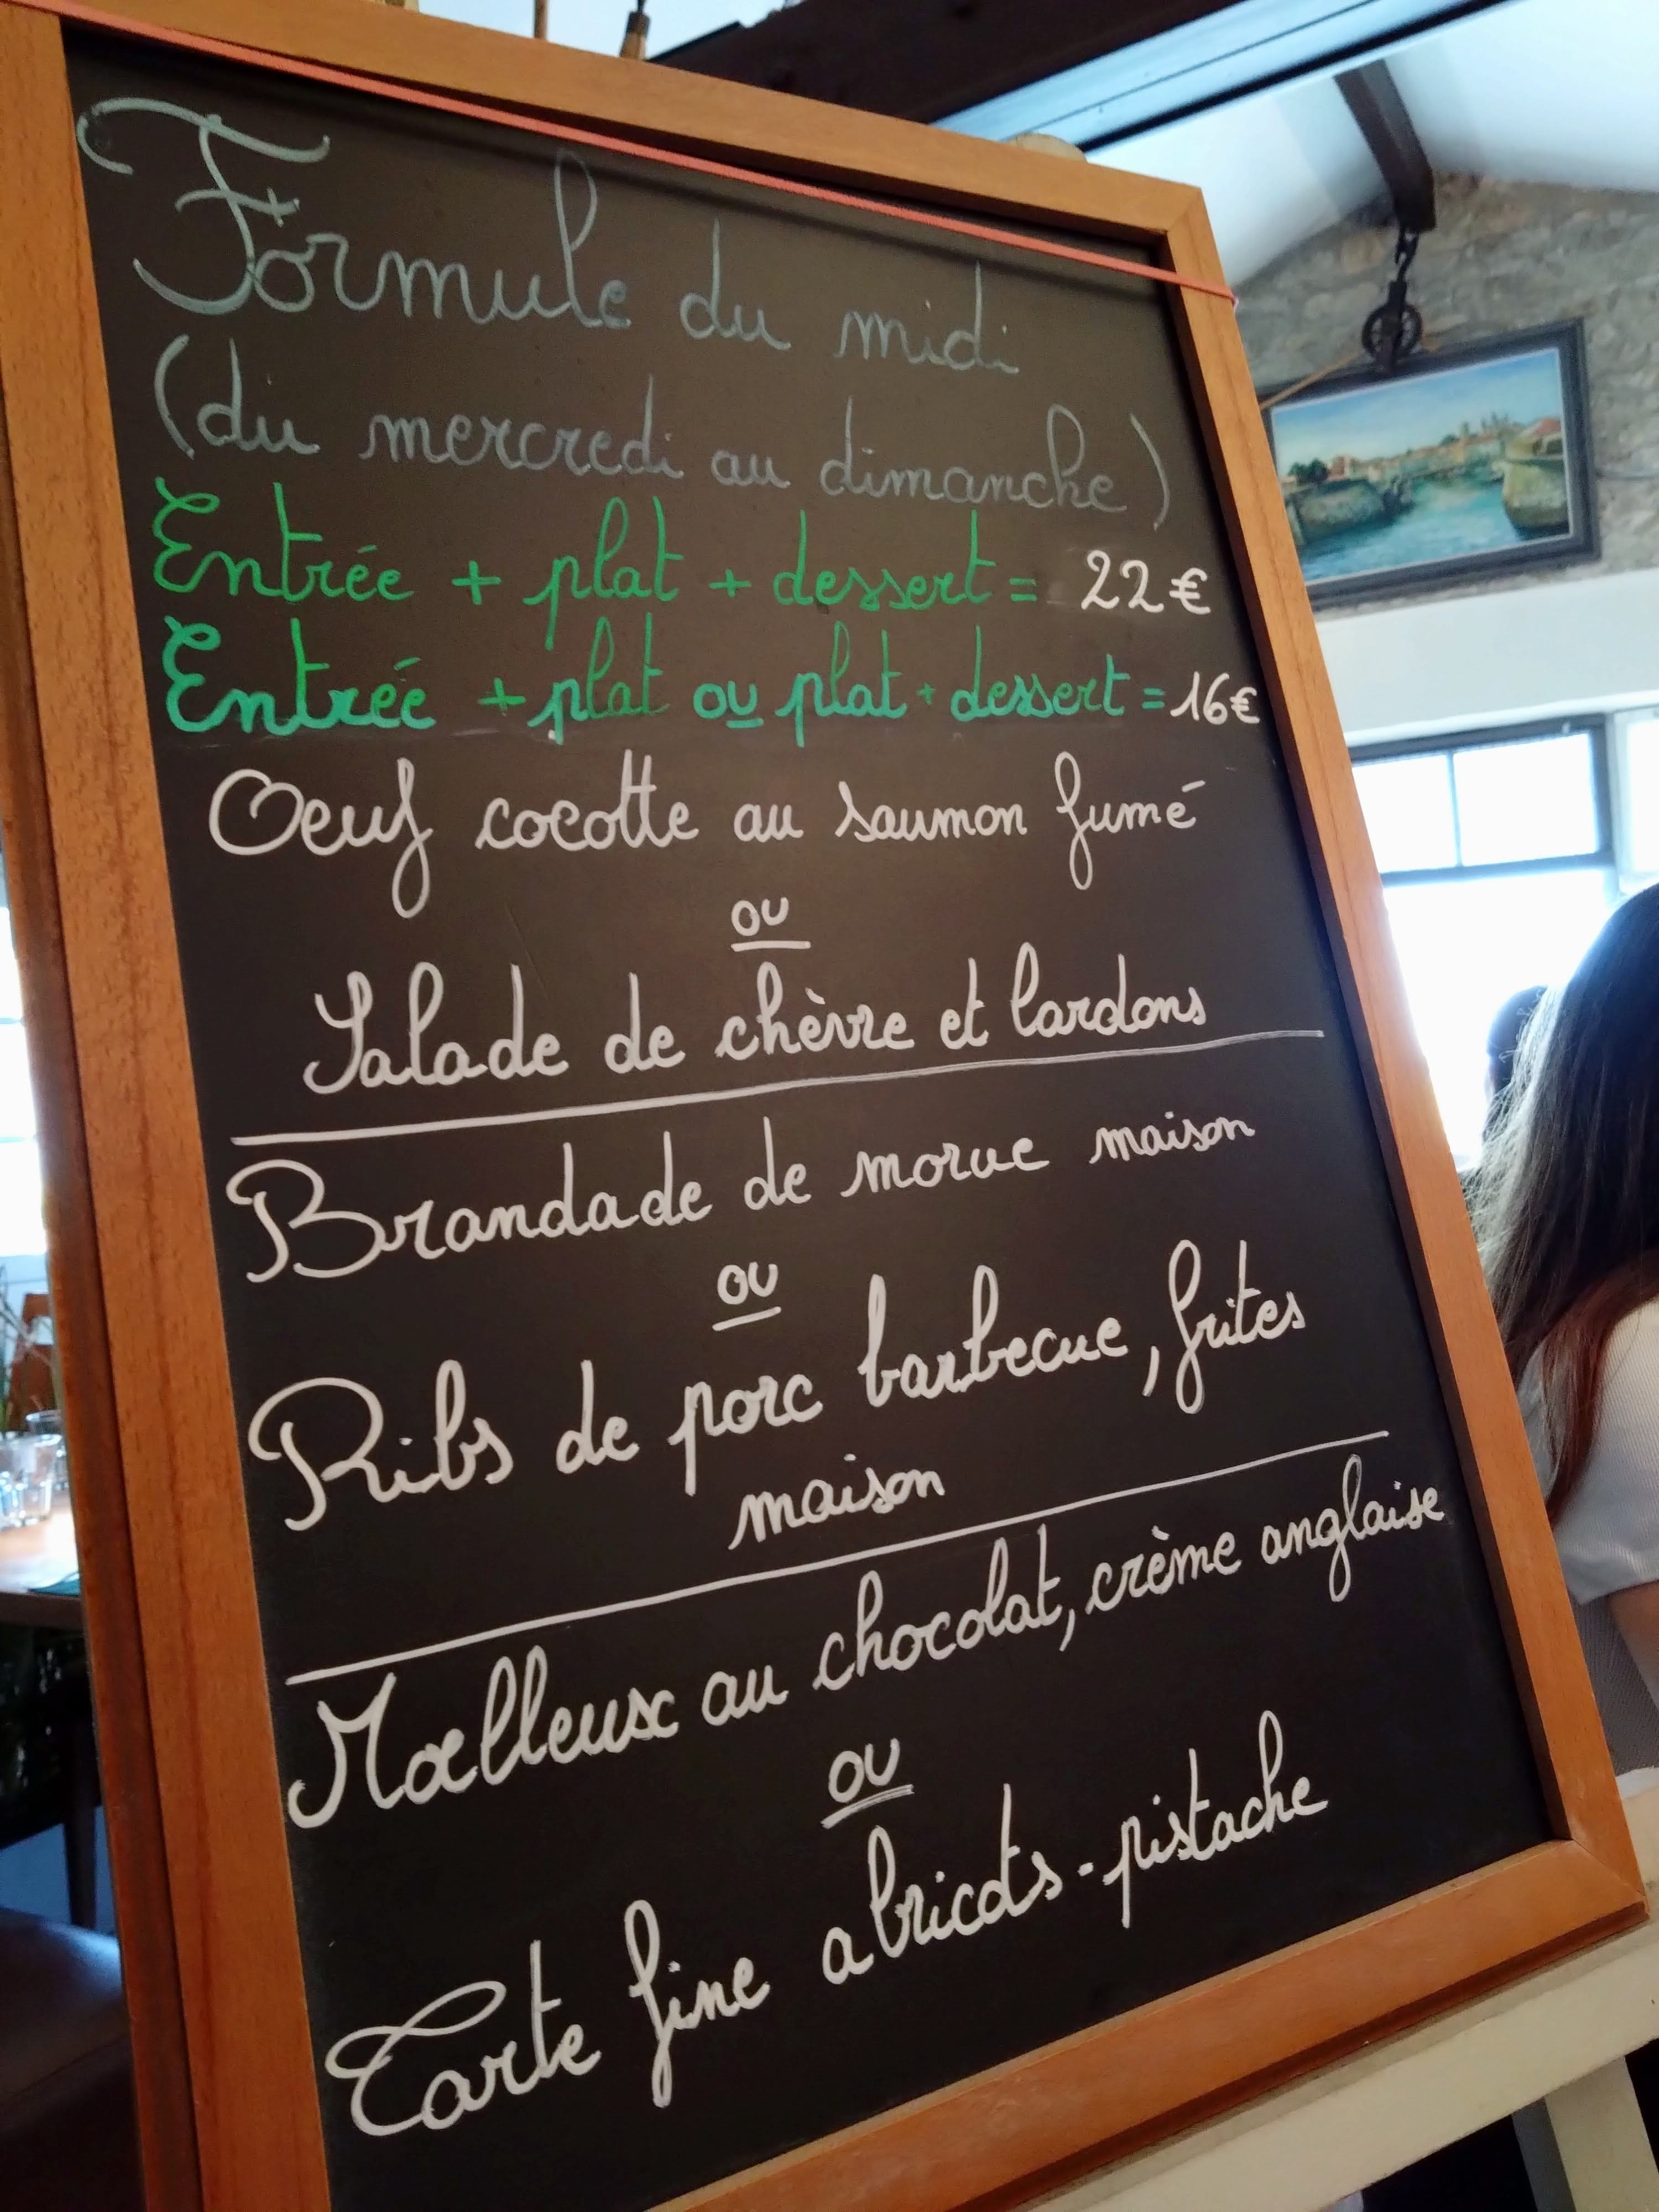 Formule du midi
(du mercredi au dimanche)
Entrée + plat + dessert = 22€
Entrée + plat ou plat + dessert = 16€
Oeuf cocotte au saumon fumé
ou
Salade de chèvre et lardons
Brandade de morue maison
ou
Ribs de porc barbecue, frites
maison
Moelleux au chocolat, crème anglaise
ou
Tarte fine abricots - pistache